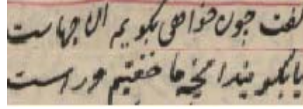 کفت جون خواهی بکویم ان جهاست
یا بکویند انجه ما خفتیم وراست